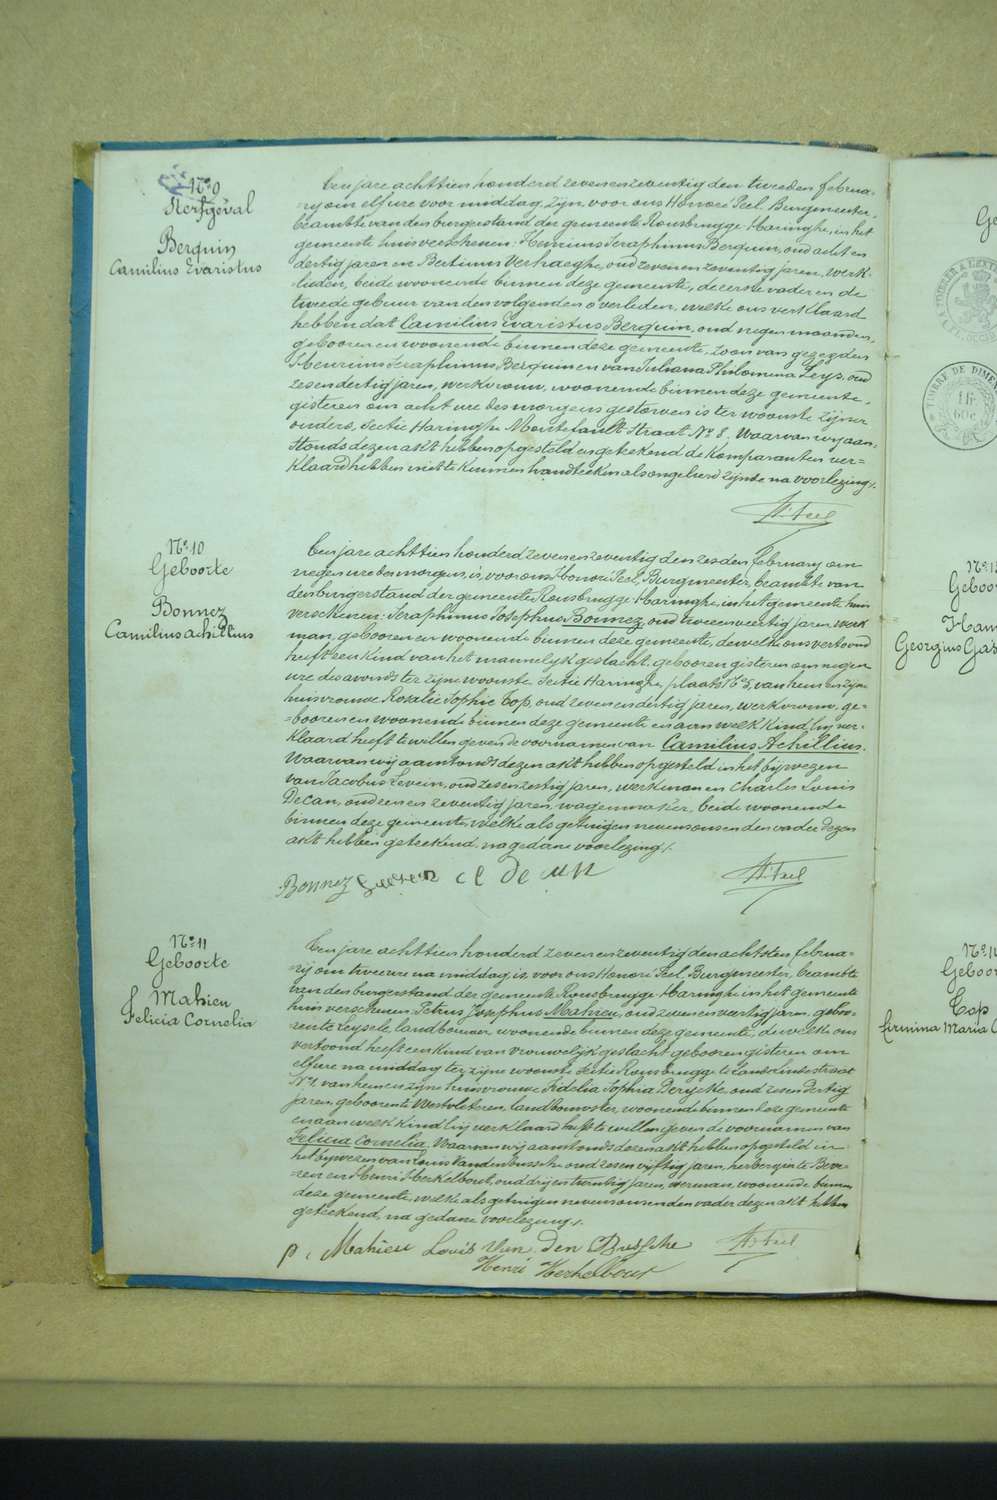 N° 9
Sterfgeval
Berquin
Camilius Evaristus
Een jare achttien honderd zevenenzeventig den tweeden februa-
-ry om elf ure voor middag, zijn voor ons Honoré Peel, Burgmeester,
beambte van den burgerstand der gemeente Rousbrugge-Haringhe, in het
gemeente huis verschenen: Henricus Seraphinus Berquin, oud acht en
dertig jaren en Bertinus Verhaeghe, oud zeven en zeventig jaren, werk-
-lieden, beide woonende binnen deze gemeente, de eerste vader en de
tweede gebuur van den volgenden overleden, welke ons verklaard
hebben dat Camilius Evaristus Berquin, oud negen maanden,
gebooren en woonende binnen deze gemeente, zoon van gezegden
Henricus Seraphinus Berquin en van Juliana Philomena Leys, oud
zesendertig jaren, werkvrouw, woonende binnen deze gemeente,
gisteren om acht ure des morgens gestorven is ter woonste zijner
ouders, Sectie Haringhe, Straat N° 8. Waarvan wij aan-
stonds dezen akt hebben opgesteld en geteekend de komparanten ver-
klaard hebben niet te kunnen handteeken als ongeleerd zijnde na voorlezing.
H. Peel
N° 10
Geboorte
Bonnez
Camilius Achillius
Een jare achttien honderd zevenenzeventig den zesden february om
negen ure des morgens, is voor ons Honoré Peel, Burgmeester, beambte van
den burgerstand der gemeente Rousbrugge-Haringhe, in het gemeente huis
verschenen: Seraphinus Josephus Bonnez, oud tweeenveertig jaren, werk
man, gebooren en woonende binnen deze gemeente, dewelke ons vertoond
heeft een kind van het mannelyk geslacht, gebooren gisteren om negen
ure des avonds ter zijne woonste Sectie Haringhe, plaats N° 5, van hem en zijne
huisvrouwe Rosalie Sophie Top, oud zeven en dertig jaren, werkvrouw, ge-
=booren en woonende binnen deze gemeente en aan welk kind hij ver-
klaard heeft te willen geven de voornamen van Camilius Achillius.
Waarvan wij aanstonds dezen akt hebben opgesteld in het bijwezen
van Jacobus Levein, oud zesenzestig jaren, werkman en Charles Louis
Decan, oud een en zeventig jaren, wagenmaker, beide woonende
binnen deze gemeente, welke als getuigen nevens ons en den vader dezen
akt hebben geteekend, na gedane voorlezing.
Bonnez
H. Peel
N° 11
Geboorte
Mahieu
Felicia Cornelia
Een jare achttien honderd zevenenzeventig den achtsten februa-
-rij om twee ure na middag, is voor ons Honoré Peel, Burgmeester, beambte
van den burgerstand der gemeente Rousbrugge-Haringhe in het gemeente
huis verschenen: Petrus Josephus Mahieu, oud zeven en veertig jaren, geboo-
ren te Leysele, landbouwer, woonende binnen deze gemeente, dewelke ons
vertoond heeft een kind van vrouwelijk geslacht, gebooren gisteren om
elf ure na middag ter zijne woonste Sectie Rousbrugge
N° 1, van hem en zijne huisvrouwe Fidelia Sophia Derycke, oud zesen dertig
jaren, gebooren te Westvleteren, landbouwster, woonende binnen deze gemeente
en aan welk kind hij verklaard heeft te willen geven de voornamen van
Felicia Cornelia. Waarvan wij aanstonds dezen akt hebben opgesteld in
het bijwezen van Louis Vandenbussche, oud zesen vijftig jaren, herbergier te Beve-
-ren en Henri Herkelbout, oud drij en twintig jaren, woonende binnen
deze gemeente, welke als getuigen nevens ons en den vader dezen akt hebben
geteekend, na gedane voorlezing.
p. Mahieu Louis Van Den Bussche H. Peel
Henri Herkelbout
N° 1
Top